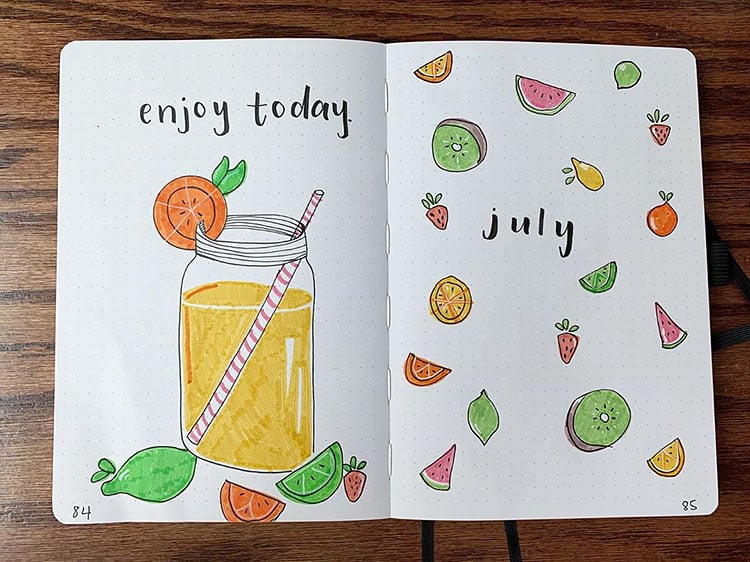 enjoy today.
84
july
85